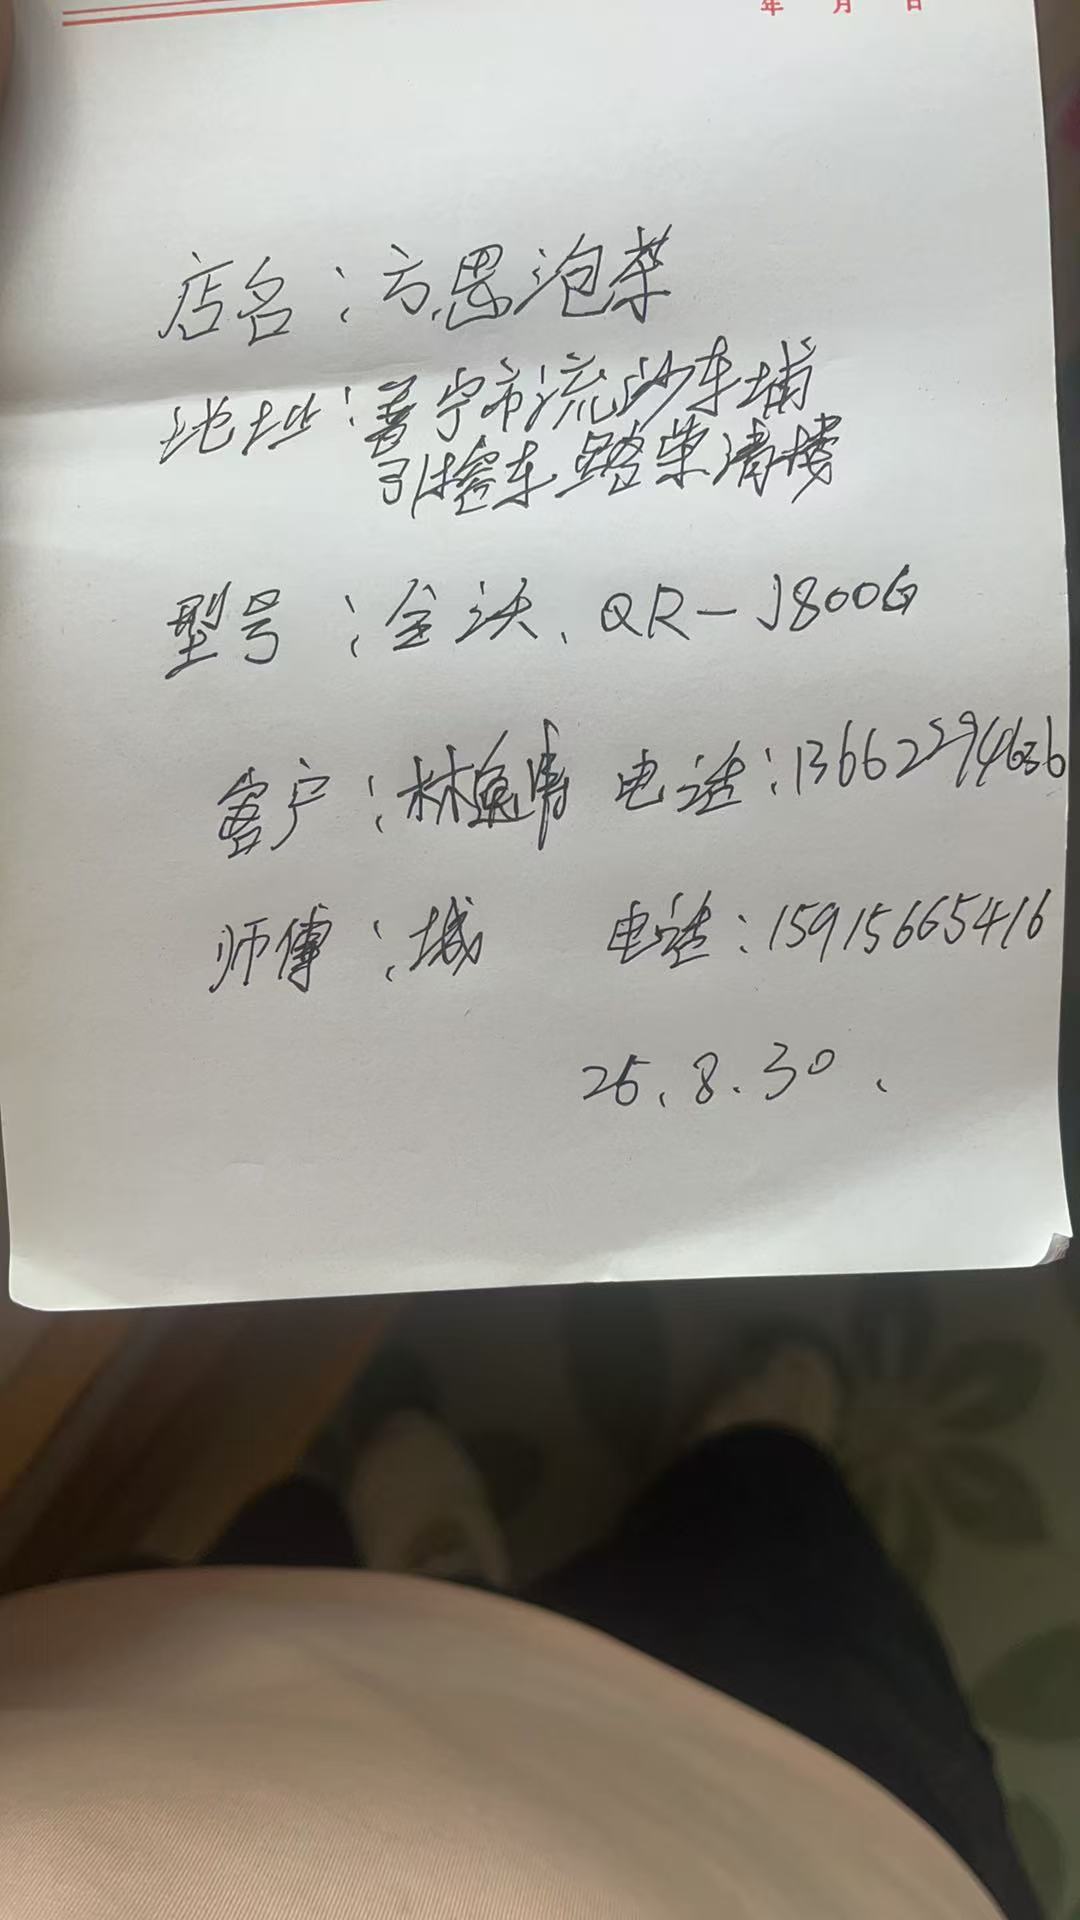 年 月 日
店名：方思泡菜
地址：普宁市流沙东埔
引榕东路荣清楼
型号：全沃、QR-J800G
客户：林 电话：
师傅：城 电话：15915665416
25.8.30、